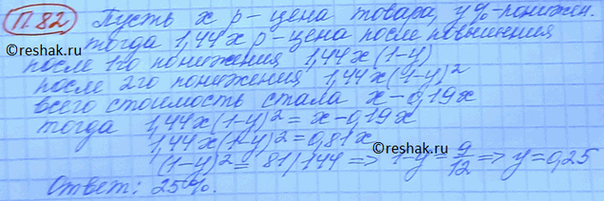 П.82 Пусть x р - цена товара, y% - понижен.
©reshak.ru тогда 1,44x р - цена после повышения
после 1го понижения 1,44x(1-y)
после 2го понижения 1,44x(1-y)²
всего стоимость стала x - 0,19x
тогда 1,44x(1-y)² = x - 0,19x
1,44x(1-y)² = 0,81x
(1-y)² = 81/144 => 1-y = 9/12 => y = 0,25
Ответ: 25%.
©reshak.ru